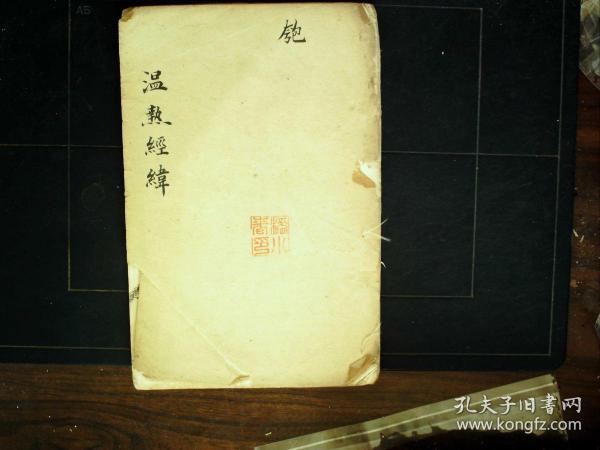 匏
温熱經緯
A5
孔夫子旧書网
www.kongfz.com